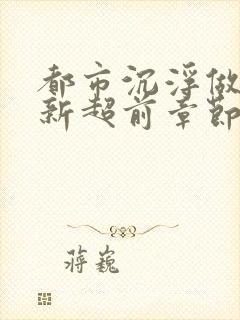 都市沉浮做
新超前章節
蒋巍